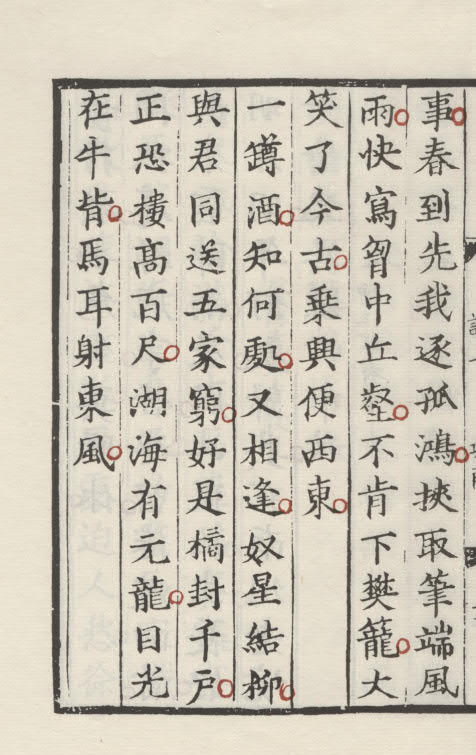 事春到先我逐孤鴻挾取筆端風
雨快寫胷中丘壑不肯下樊籠大
笑了今古乗興便西東
一罇酒知何處又相逢奴星結柳
與君同送五家窮好是橘封千戶
正恐樓髙百尺湖海有元龍目光
在牛背馬耳射東風